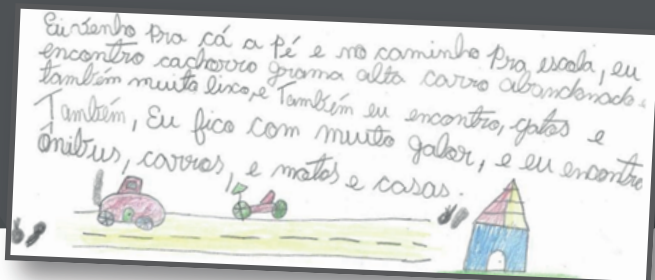 Eu venho pra cá a pé e no caminho pra escola, eu
encontro cachorro grama alta carro abandonado e
também muito lixo, e Também eu encontro, gatos e
Também, Eu fico com muito galor, e eu encontro
ônibus, carros, e matos e casas.